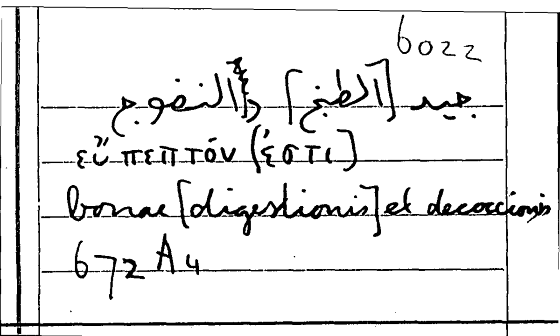 6022
جيد [الطبخ] والنضوج
εὔπεπτόν (ἐστι)
bonae [digestionis] et decoccionis
672 A 4